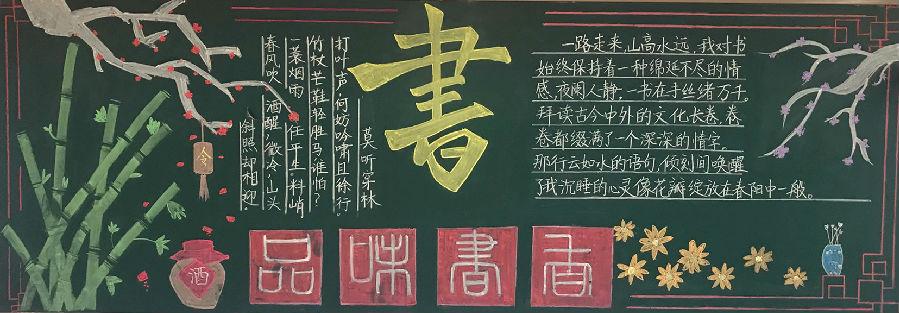 書
莫听穿林
打叶声,何妨吟啸且徐行。
竹杖芒鞋轻胜马,谁怕?
一蓑烟雨任平生,料峭
春风吹酒醒,微冷,山头
斜照却相迎。
一路走来,山高水远,我对书
始终保持着一种绵延不尽的情
感,夜阑人静,一书在手丝绪万千。
拜读古今中外的文化长卷,卷
卷都缀满了一个深深的情字。
那行云如水的语句,倾刻间唤醒
了我沉睡的心灵像花瓣绽放在春阳中一般。
令
酒
品味書香